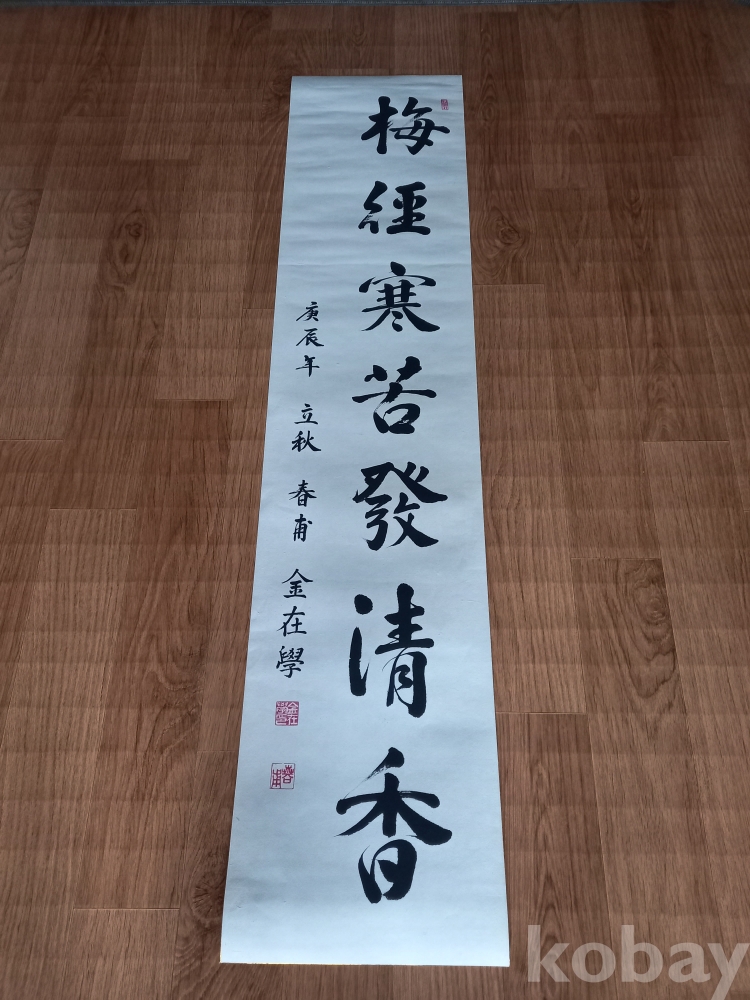 梅經寒苦發清香
庚辰年 立秋 春甫 金在學
kobay